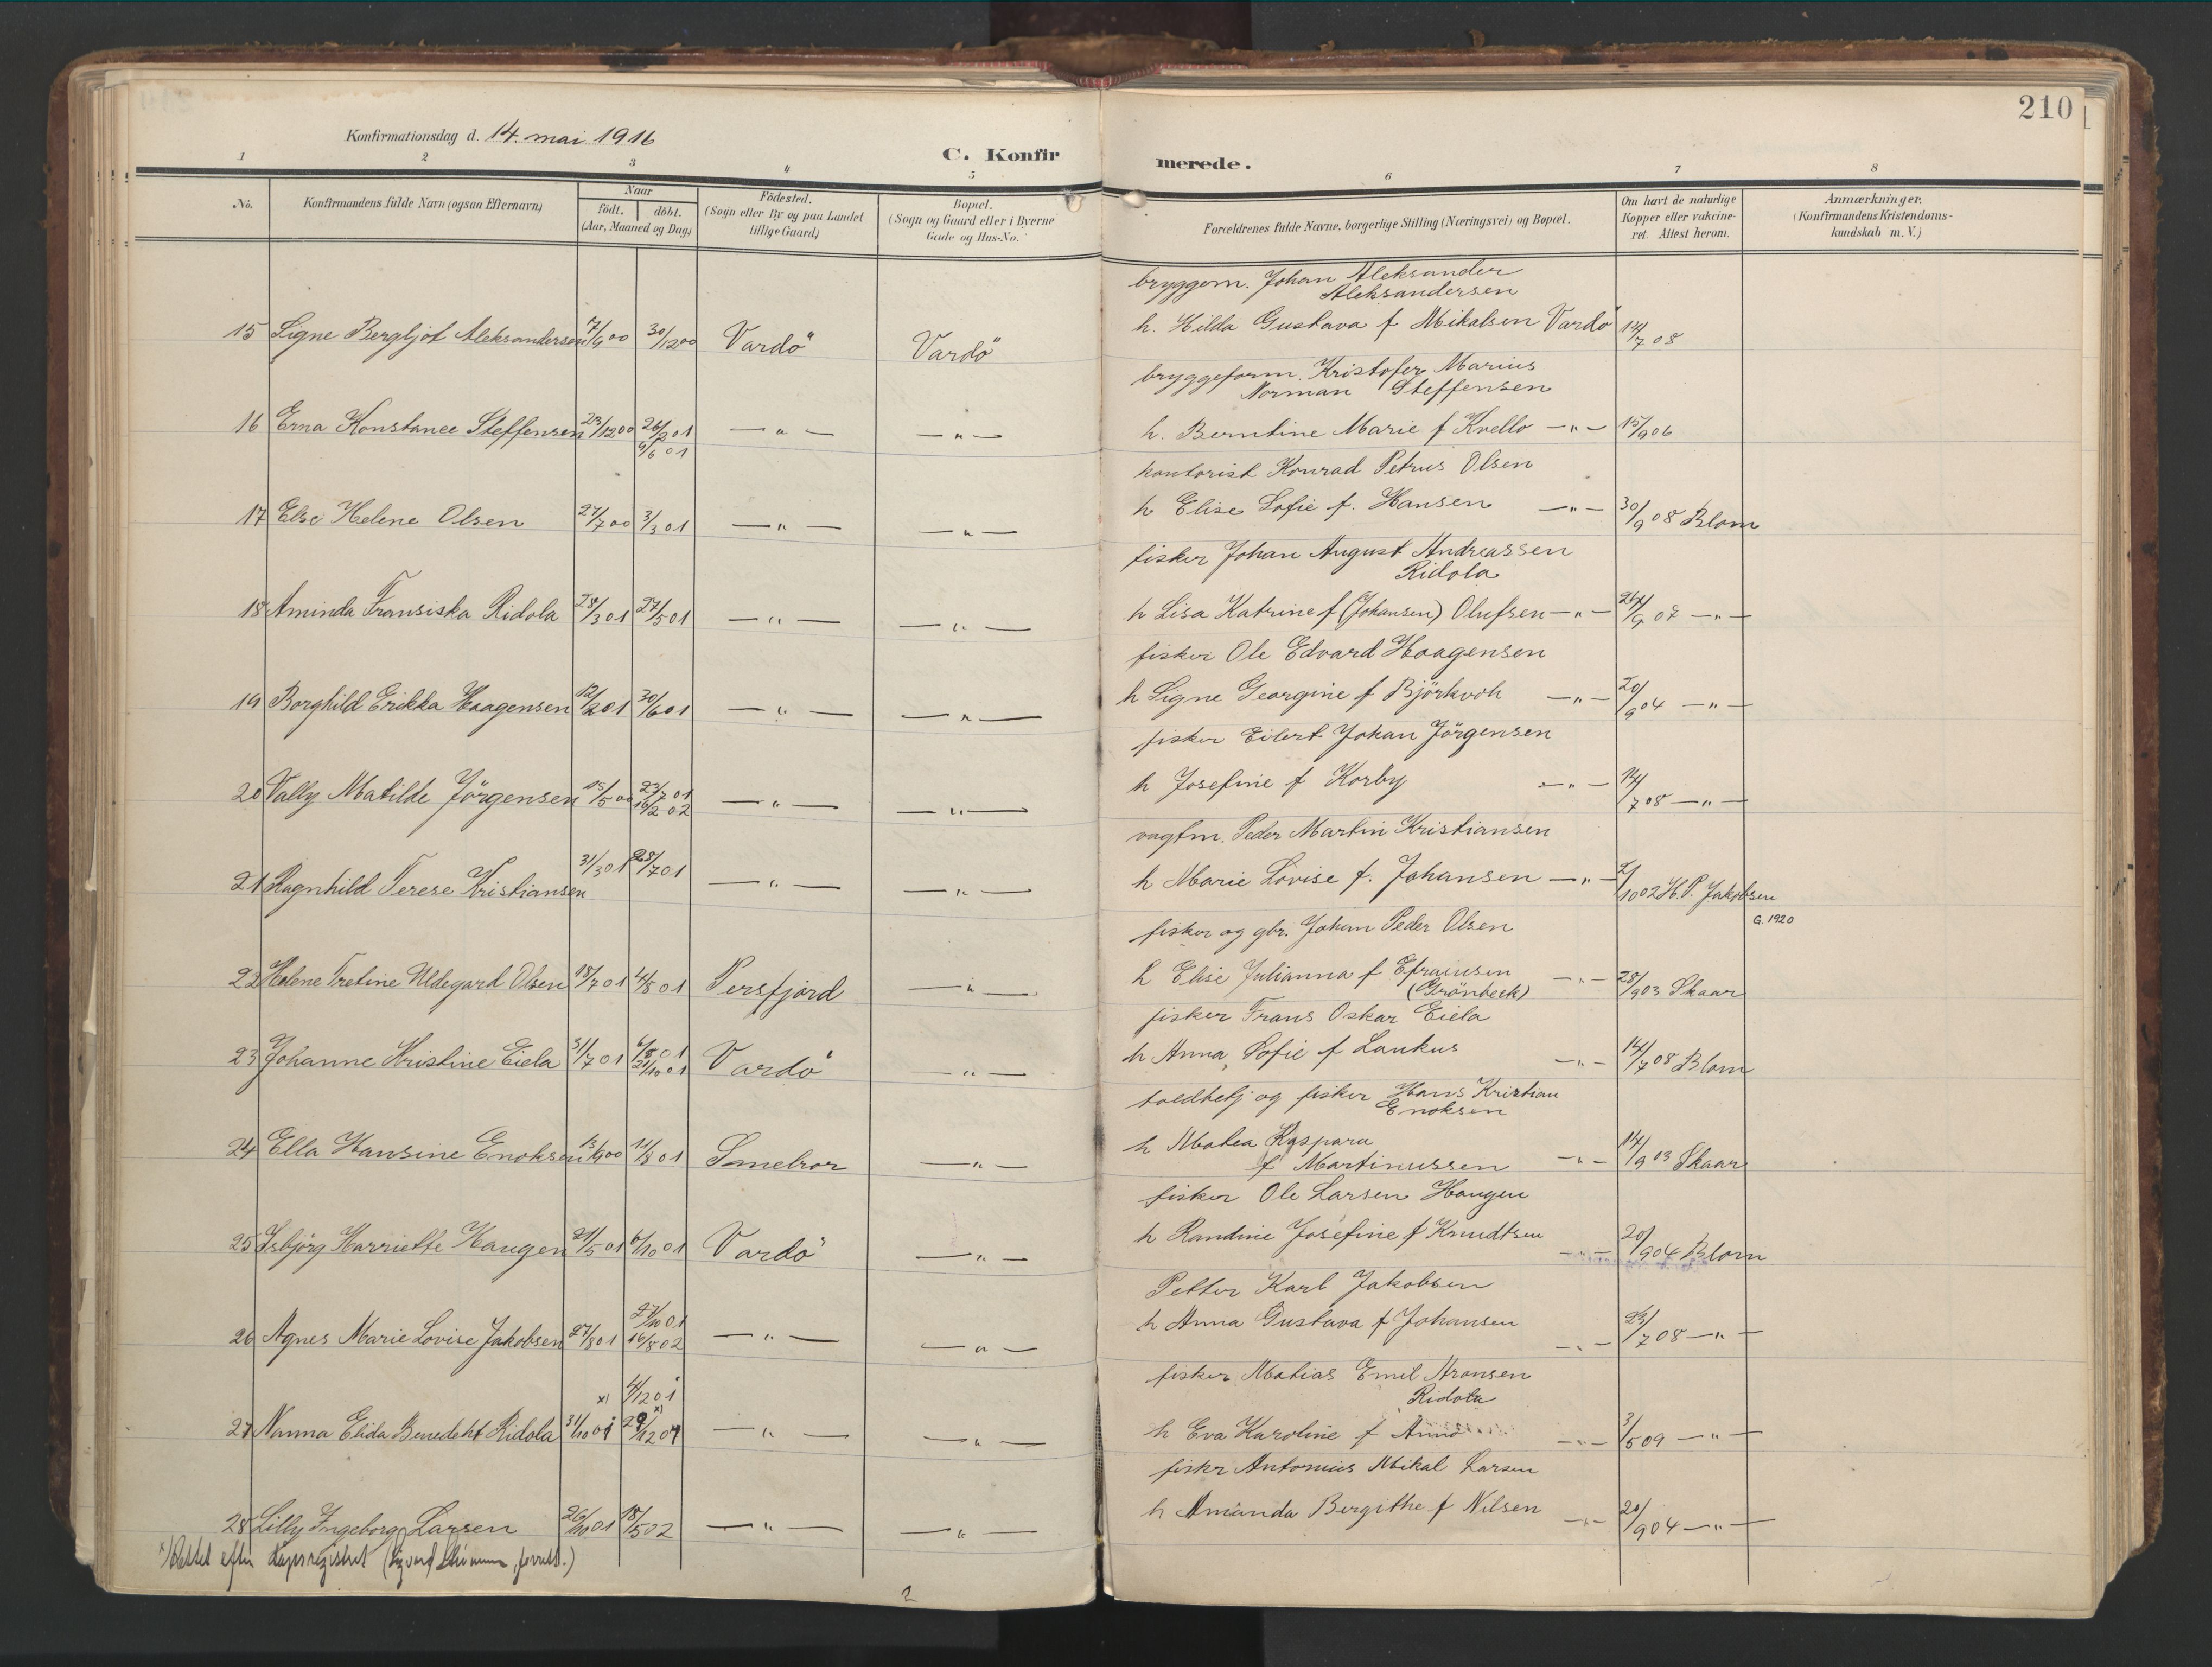 210
Konfirmationsdag d. 14. mai 1916
C. Konfirmerede.
1 2 3 4 5 6 7 8
No. Konfirmandens fulde Navn (ogsaa Efternavn) Naar födt. döbt. (Aar, Maaned og Dag) Födested. (Sogn eller By og paa Landet tillige Gaard) Bopæl. (Sogn og Gaard eller i Byerne Gade og Hus-No. Forældrenes fulde Navne, borgerlige Stilling (Næringsvei) og Bopæl. Om havt de naturlige Kopper eller vakcineret. Attest herom. Anmærkninger. (Konfirmandens Kristendomskundskab m. V.)
bryggem. Johan Aleksander
Aleksandersen
15 Signe Bergljot Aleksandersen 7/9 00 30/12 00 Vardö Vardö h. Hilda Gustava f Mikalsen Vardö 14/7 08
bryggeform. Kristofer Marius
Norman Steffensen
16 Erna Konstance Steffensen 23/12 00 26/2 01 h. Berntine Marie f Kvello —"— 15/9 06
6/6 01 —"— —"—
kontorist Konrad Petrus Olsen
17 Else Helene Olsen 27/7 00 3/3 01 —"— —"— h Elise Sofie f. Hansen —"— 30/9 08 Blom
fisker Johan August Andreassen
Ridola
18 Aminda Fransiska Ridola 28/3 01 27/5 01 —"— —"— h Lisa Katrine f (Johansen) Olufsen —"— 24/9 07 —"—
fisker Ole Edvard Haagensen
19 Borghild Erikka Haagensen 12/2 01 30/6 01 —"— —"— h Signe Georgine f Björkvoh —"— 20/9 04 —"—
fisker Eilert Johan Jörgensen
20 Vally Matilde Jörgensen 15/5 00 23/7 01 —"— —"— h Josefine f Korby —"— 14/7 08 —"—
16/2 02
vagtm. Peder Martin Kristiansen
21 Ragnhild Terese Kristiansen 31/3 01 28/7 01 —"— —"— h Marie Lovise f. Johansen —"— 2/10 02 H. P. Jakobsen
G. 1920
fisker og gbr. Johan Peder Olsen
22 Helene Tretine Uldegard Olsen 18/7 01 4/8 01 Persfjord —"— h Elise Julianna f Efraimsen —"— 28/9 03 Skaar
(Grönbeck)
fisker Frans Oskar Eiela
23 Johanne Kristine Eiela 31/7 01 6/8 01 Vardö —"— h Anna Sofie f Lankus —"— 14/7 08 Blom
21/10 01
toldbetj og fisker Hans Kristian
Enoksen
24 Ella Hansine Enoksen 00 11/8 01 Smelror —"— h Matea Kaspara
f Martinussen —"— 14/9 03 Skaar
fisker Ole Larsen Haugen
25 Isbjörg Harriette Haugen 21/5 01 6/10 01 Vardö —"— h Randine Josefine f Knudtsen —"— 20/9 04 Blom
Petter Karl Jakobsen
26 Agnes Marie Lovise Jakobsen 27/8 01 27/10 01 —"— —"— h Anna Gustava f Johansen —"— 23/7 08 —"—
16/8 02
fisker Matias Emil Aronsen
Ridola
27 Nanna Elida Benedekt Ridola x) 31/10 01 4/12 01 —"— —"— h Eva Karoline f —"— 3/5 09 —"—
fiskr Antonius Mikal Larsen
28 Lilly Ingeborg Larsen 26/10 01 18/5 02 —"— —"— h Amanda Bergithe f Nilsen —"— 20/9 04 —"—
x) Rettet efter daapsregistret
2